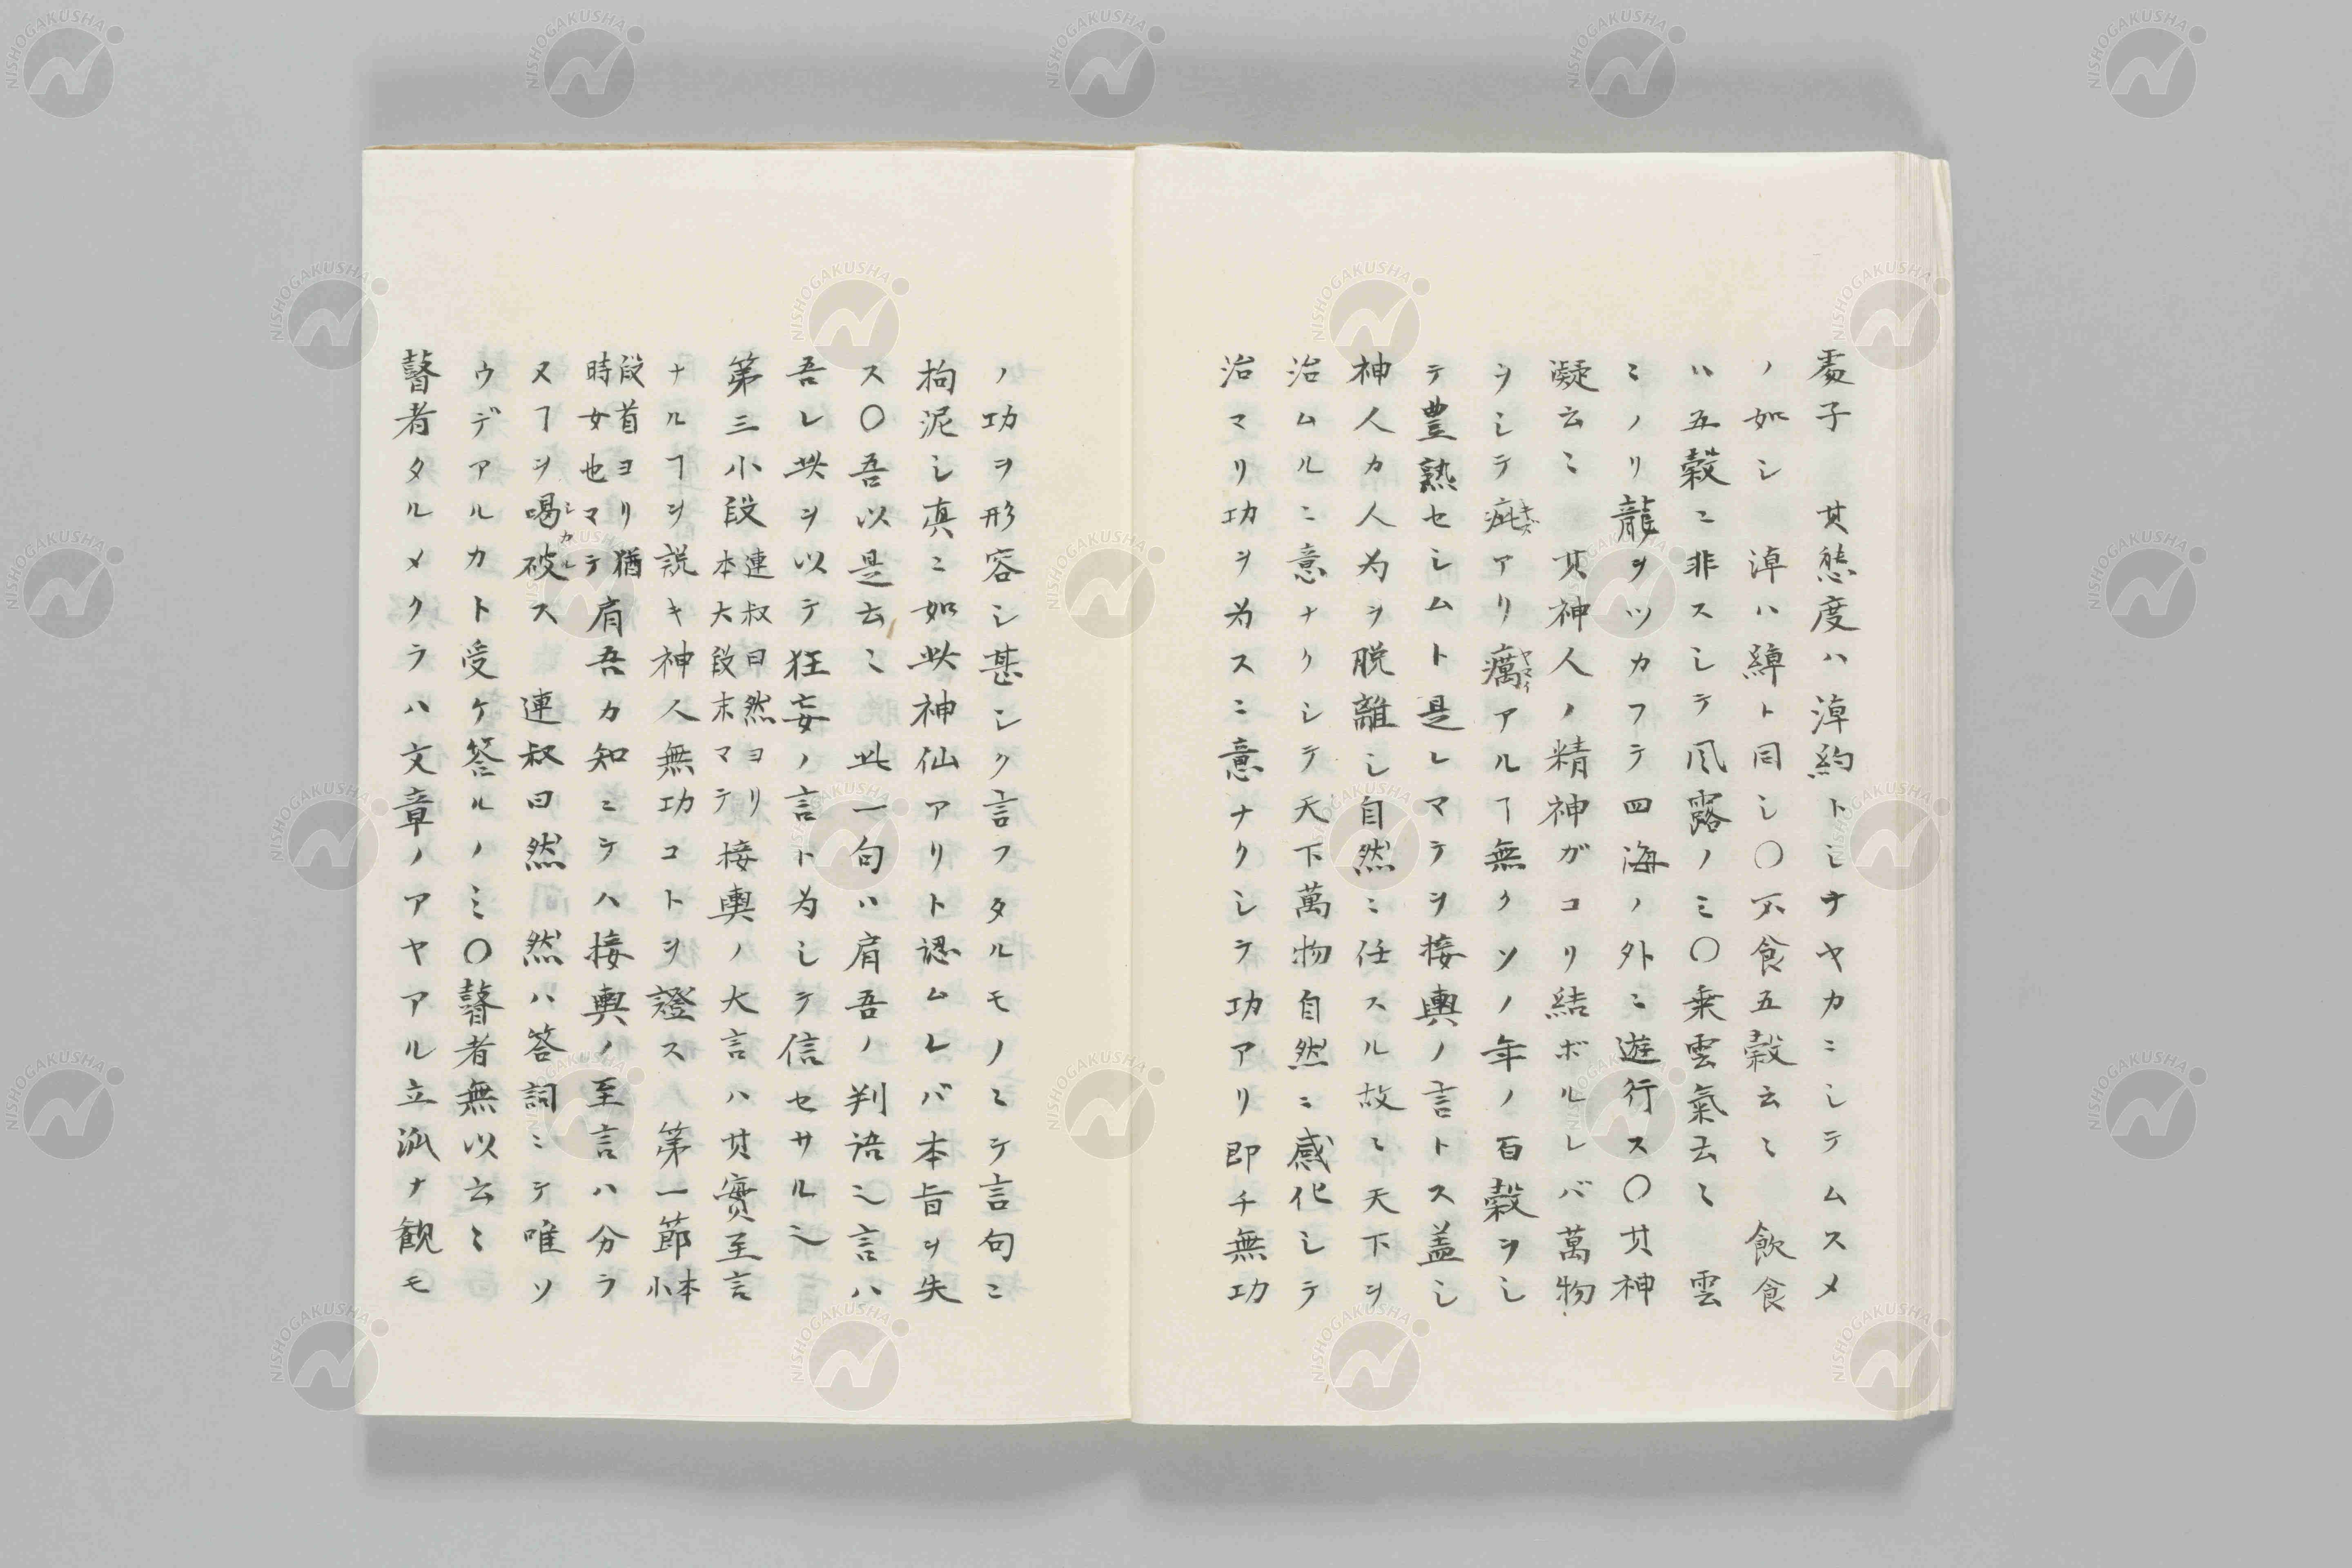 処子　其態度ハ淖約トシナヤカニシテムスメ
ノ如シ　淖ハ綽ト同シ〇不食五穀云〻　飲食
ハ五穀ニ非スシテ風露ノミ〇乗雲氣云〻　雲
ミノリ龍ヲツカフテ四海ノ外ニ遊行ス〇其神
凝云〻　其神人ノ精神ガコリ結ボルレバ萬物
ヲシテ疵キスアリ癘ヤマイアルヿ無クソノ年ノ百穀ヲシ
テ豊熟セシムト是レマテヲ接輿ノ言トス盖シ
神人カ人為ヲ脱離シ自然ニ任スル故ミ天下ヲ
治ムルニ意ナクシテ天下萬物自然ニ感化シテ
治マリ功ヲ為スニ意ナクシテ功アリ即チ無功
ノ功ヲ形容シ甚シク言フタルモノミシテ言句ニ
拘泥シ真ニ如此神仙アリト認ムレバ本旨ヲ失
ス〇吾以是云〻　此一句ハ肩吾ノ判语之言ハ
吾レ此ヲ以テ狂妄ノ言ト為シテ信セサル之
第三小段連叔曰然ヨリ本大段末マテ接輿ノ大言ハ其實至言
ナルヿヲ説キ神人無功コトヲ證ス　第一節本小
段首ヨリ猶時女也マテ肩吾カ知ニテハ接輿ノ至言ハ分ラ
ヌヿヲ喝破シカルス　連叔曰然　然ハ答詞ミテ唯ソ
ウデアルカト受ケ答ルノミ〇瞽者無以云〻
瞽者タルメクラハ文章ノアヤアル立派ナ観モ